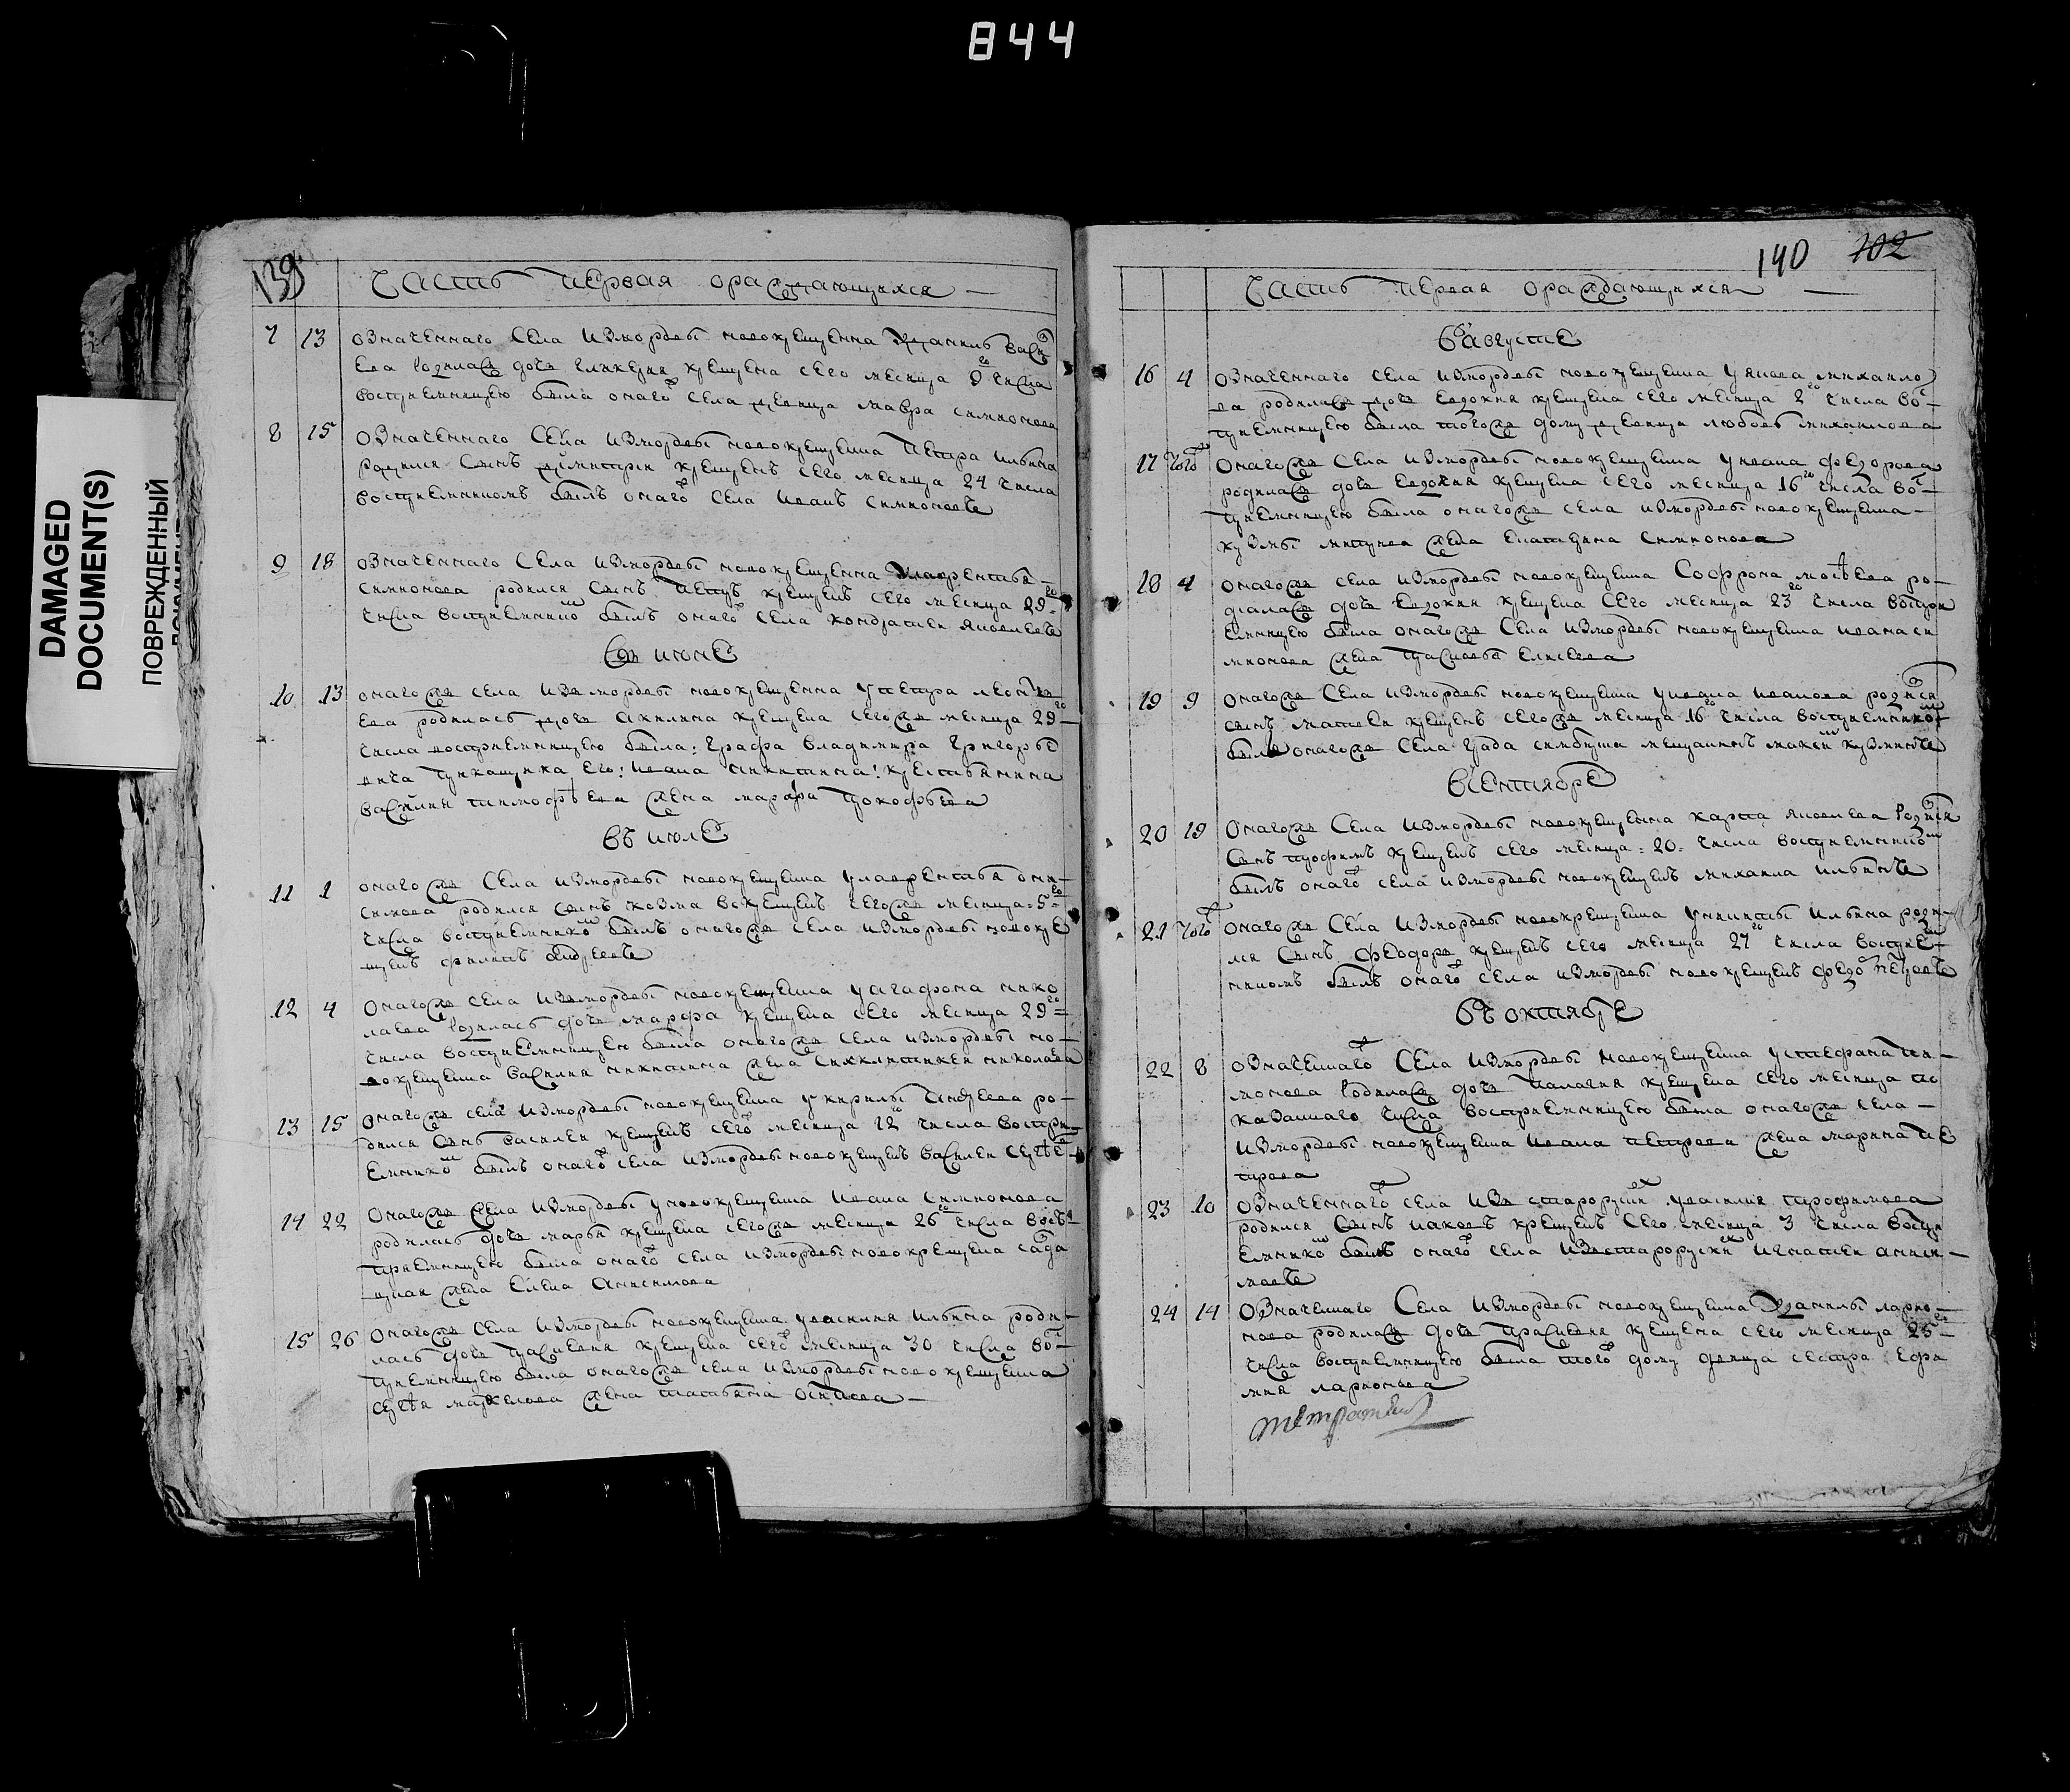 844
DAMAGED
DOCUMENT(S)
ПОВРЕЖДЕННЫЙ
139
Часть первая ораждающихся
7 13 означеннаго села измордвы новокрещенна Данилы Васи
ева родилась дочь гликерия крещена сего месяца 9го числа
восприемницею была онаго села девица мавра симионова
8 15 означеннаго села измордвы новокрещена Петра ильина
родился сынъ димитрей крещенъ сего месяца 24 числа
восприемникомъ былъ онаго села иванъ симионовъ
9 18 означеннаго села измордвы новокрещенна Лаврентья
симионова родился сынъ петръ крещенъ сего месяца 29го
числа восприемником былъ онаго села кондратей яковлевъ
въ июне
10 13 онагожъ села изъ мордвы новокрещенна упетра
ева родилась дочь акилина крещена сегожъ месяца 29го
числа восприемницею была: графа владимира григорье
вича прикащика его: ивана никитина: крестьянина
василия тимофѣева жена марфа прокофьева
въ июле
11 1 онагожъ села измордвы новокрещенна улаврентья они
симова родился сынъ козма крещенъ сегожъ месяца 5го
числа восприемником былъ онагожъ села измордвы новокре
щенъ филипъ андреевъ
12 4 онагожъ села измордвы новокрещенна уагафона нико
лаева родилась дочь марфа крещена сего месяца 29го
числа восприемницею была онагожъ села измордвы но
вокрещена василия никитина жена николаева
13 15 онагожъ села измордвы новокрещена укирилы андреева ро
дился сынъ василей крещенъ сего месяца 12го числа воспри
емником былъ онаго села измордвы новокрещенъ василей сергѣе
14 22 онагожъ села измордвы уновокрещена ивана симионова
родилась дочь марья крещена сегожъ месяца 26го числа вос
приемницею была онаго села измордвы новокрещена
жена елена анисимова
15 26 онагожъ села измордвы новокрещена увасилия ильина роди
лась дочь прасковия крещена сего месяца 30 числа вос
приемницею была онагожъ села измордвы новокрещена
сергѣя маркелова жена татьяна осипова
140 102
Часть первая ораждающихся
въ августе
16 4 означеннаго села измордвы новокрещена уякова михайло
ва родилась дочь евдокия крещена сего месяца 8го числа вос
приемницею была тогожъ дому девица любовь михайлова
17 того онагожъ села измордвы новокрещена уивана федорова
родилась дочь евдокия крещена сего месяца 16го числа вос
приемницею была онагожъ села измордвы новокрещена
кузмы жена екатерина симионова
18 4 онагожъ села измордвы новокрещена Софрона ро
дилась дочь евдокия крещена сего месяца 23го числа воспри
емницею была онагожъ села измордвы новокрещена ивана си
мионова жена прасковья елисеева
19 9 онагожъ села измордвы новокрещена уивана иванова родился
сынъ матвей крещенъ сегожъ месяца 16го числа восприемником
былъ онагожъ села града синбирска мещанинъ кузминъ
въ сентябре
20 19 онагожъ села измордвы новокрещенна карпа яковлева родился
сынъ трофимъ крещенъ сего месяца: 20: числа восприемником
былъ онаго села измордвы новокрещенъ михаила ильинъ
21 того онагожъ села измордвы новокрещена уникиты ильина роди
лся сынъ феодоръ крещенъ сего месяца 27го числа восприем
никомъ былъ онаго села измордвы новокрещенъ федоръ петровъ
въ октябре
22 8 означеннаго села измордвы новокрещена устефана
монова родилась дочь палагия крещена сего месяца по
казаннаго числа восприемницею была онагожъ села
измордвы новокрещена ивана петрова жена марина пе
трова
23 10 означеннаго села изъ старорусских увасилия трофимова
родился сынъ иаковъ крещенъ сего месяца 3 числа воспри
емником былъ онаго села изъ старорусских игнатей аниси
мовъ
24 14 означеннаго села измордвы новокрещена Данилы ларио
нова родилась дочь прасковия крещена сего месяца 25го
числа восприемницею была того дому девица сестра ефи
мия ларионова